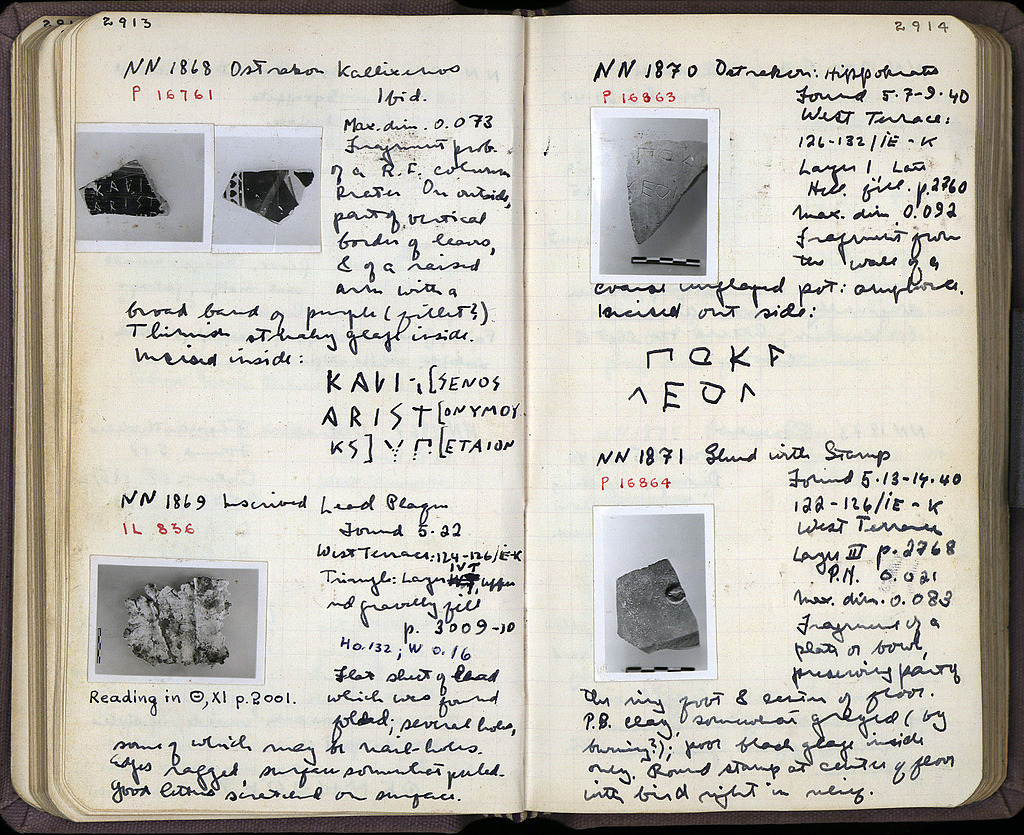 2913
NN 1868 Ostrakon Kallixenos
P 16761
Ibid.
Max. dim. 0.073
Fragment prob.
of a R.F. column
krater. On outside,
part of vertical
border of leaves,
& of a raised
arm with a
broad band of purple (fillet?).
Thinnish streaky glaze inside.
Incised inside:
KAVI-,[SENOS
ARIST[ONYMOY
KS]YΠ[ETAION
NN 1869 Inscribed Lead Plaque
IL 836
Found 5.22
West Terrace: 124-126/ΙΕ-Κ
Triangle: Layer IVT, upper
red gravelly fill
p. 3009-10
H 0.132; W 0.16
Flat sheet of lead
Reading in Θ, XI p. 2001.
which was found
folded; several holes,
some of which may be nail-holes.
Edges ragged, surface somewhat peeled.
Good letters scratched on surface.
2914
NN 1870 Ostrakon: Hippokrates
P 16863
Found 5-7-9-40
West Terrace:
126-132/ΙΕ-Κ
Layer I Late
Hell. fill. p. 2760
Max. dim 0.092
Fragment from
the wall of a
coarse unglazed pot: amphora.
Incised out side:
ΠΟΚΡ
ΛΕΟΛ
NN 1871 Sherd with Stamp
P 16864
Found 5-13-14-40
122-126/ΙΕ-Κ
West Terrace
Layer III p. 2768
P.H. 0.021
Max. dim. 0.083
Fragment of a
plate or bowl,
preserving part of
the ring foot & center of floor.
P.B. clay, somewhat greyed (by
burning?); poor black glaze inside
only. Round stamp at center of floor
with bird right in relief.